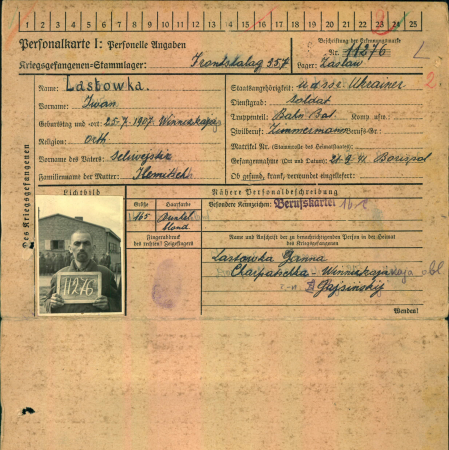 1 2 3 4 5 6 7 8 9 10 11 12 13 14 15 16 17 18 19 20 21 22 23 24 25
Personalkarte I: Personelle Angaben
Beschriftung der Erkennungsmarke
Nr. 11276
Kriegsgefangenen-Stammlager: Frontstalag 357
Lager: Zaslaw
Des Kriegsgefangenen
Name: Lastowka.
Staatsangehörigkeit: U.d.S.S.R. Ukrainer
2
Vorname: Iwan.
Dienstgrad: Soldat
Truppenteil: Bahn Bat. Komp. usw.:
Geburtstag und -ort: 25-7-1907 Winnizkaja
Zivilberuf: Zimmermann Berufs-Gr.:
Religion: orth
Matrikel Nr. (Stammrolle des Heimatstaates):
Vorname des Vaters:
Gefangennahme (Ort und Datum): 21-9-41 Borispol
Familienname der Mutter:
Ob gesund, krank, verwundet eingeliefert:
Lichtbild
Nähere Personalbeschreibung
Größe
Haarfarbe
Besondere Kennzeichen:
Berufskartei
165
Dunkel
blond
Fingerabdruck
des rechten! Zeigefingers
Name und Anschrift der zu benachrichtigenden Person in der Heimat
des Kriegsgefangenen
Lastowka Ganna
Winnizkaja obl
Gajsinskij
11276
Wenden!